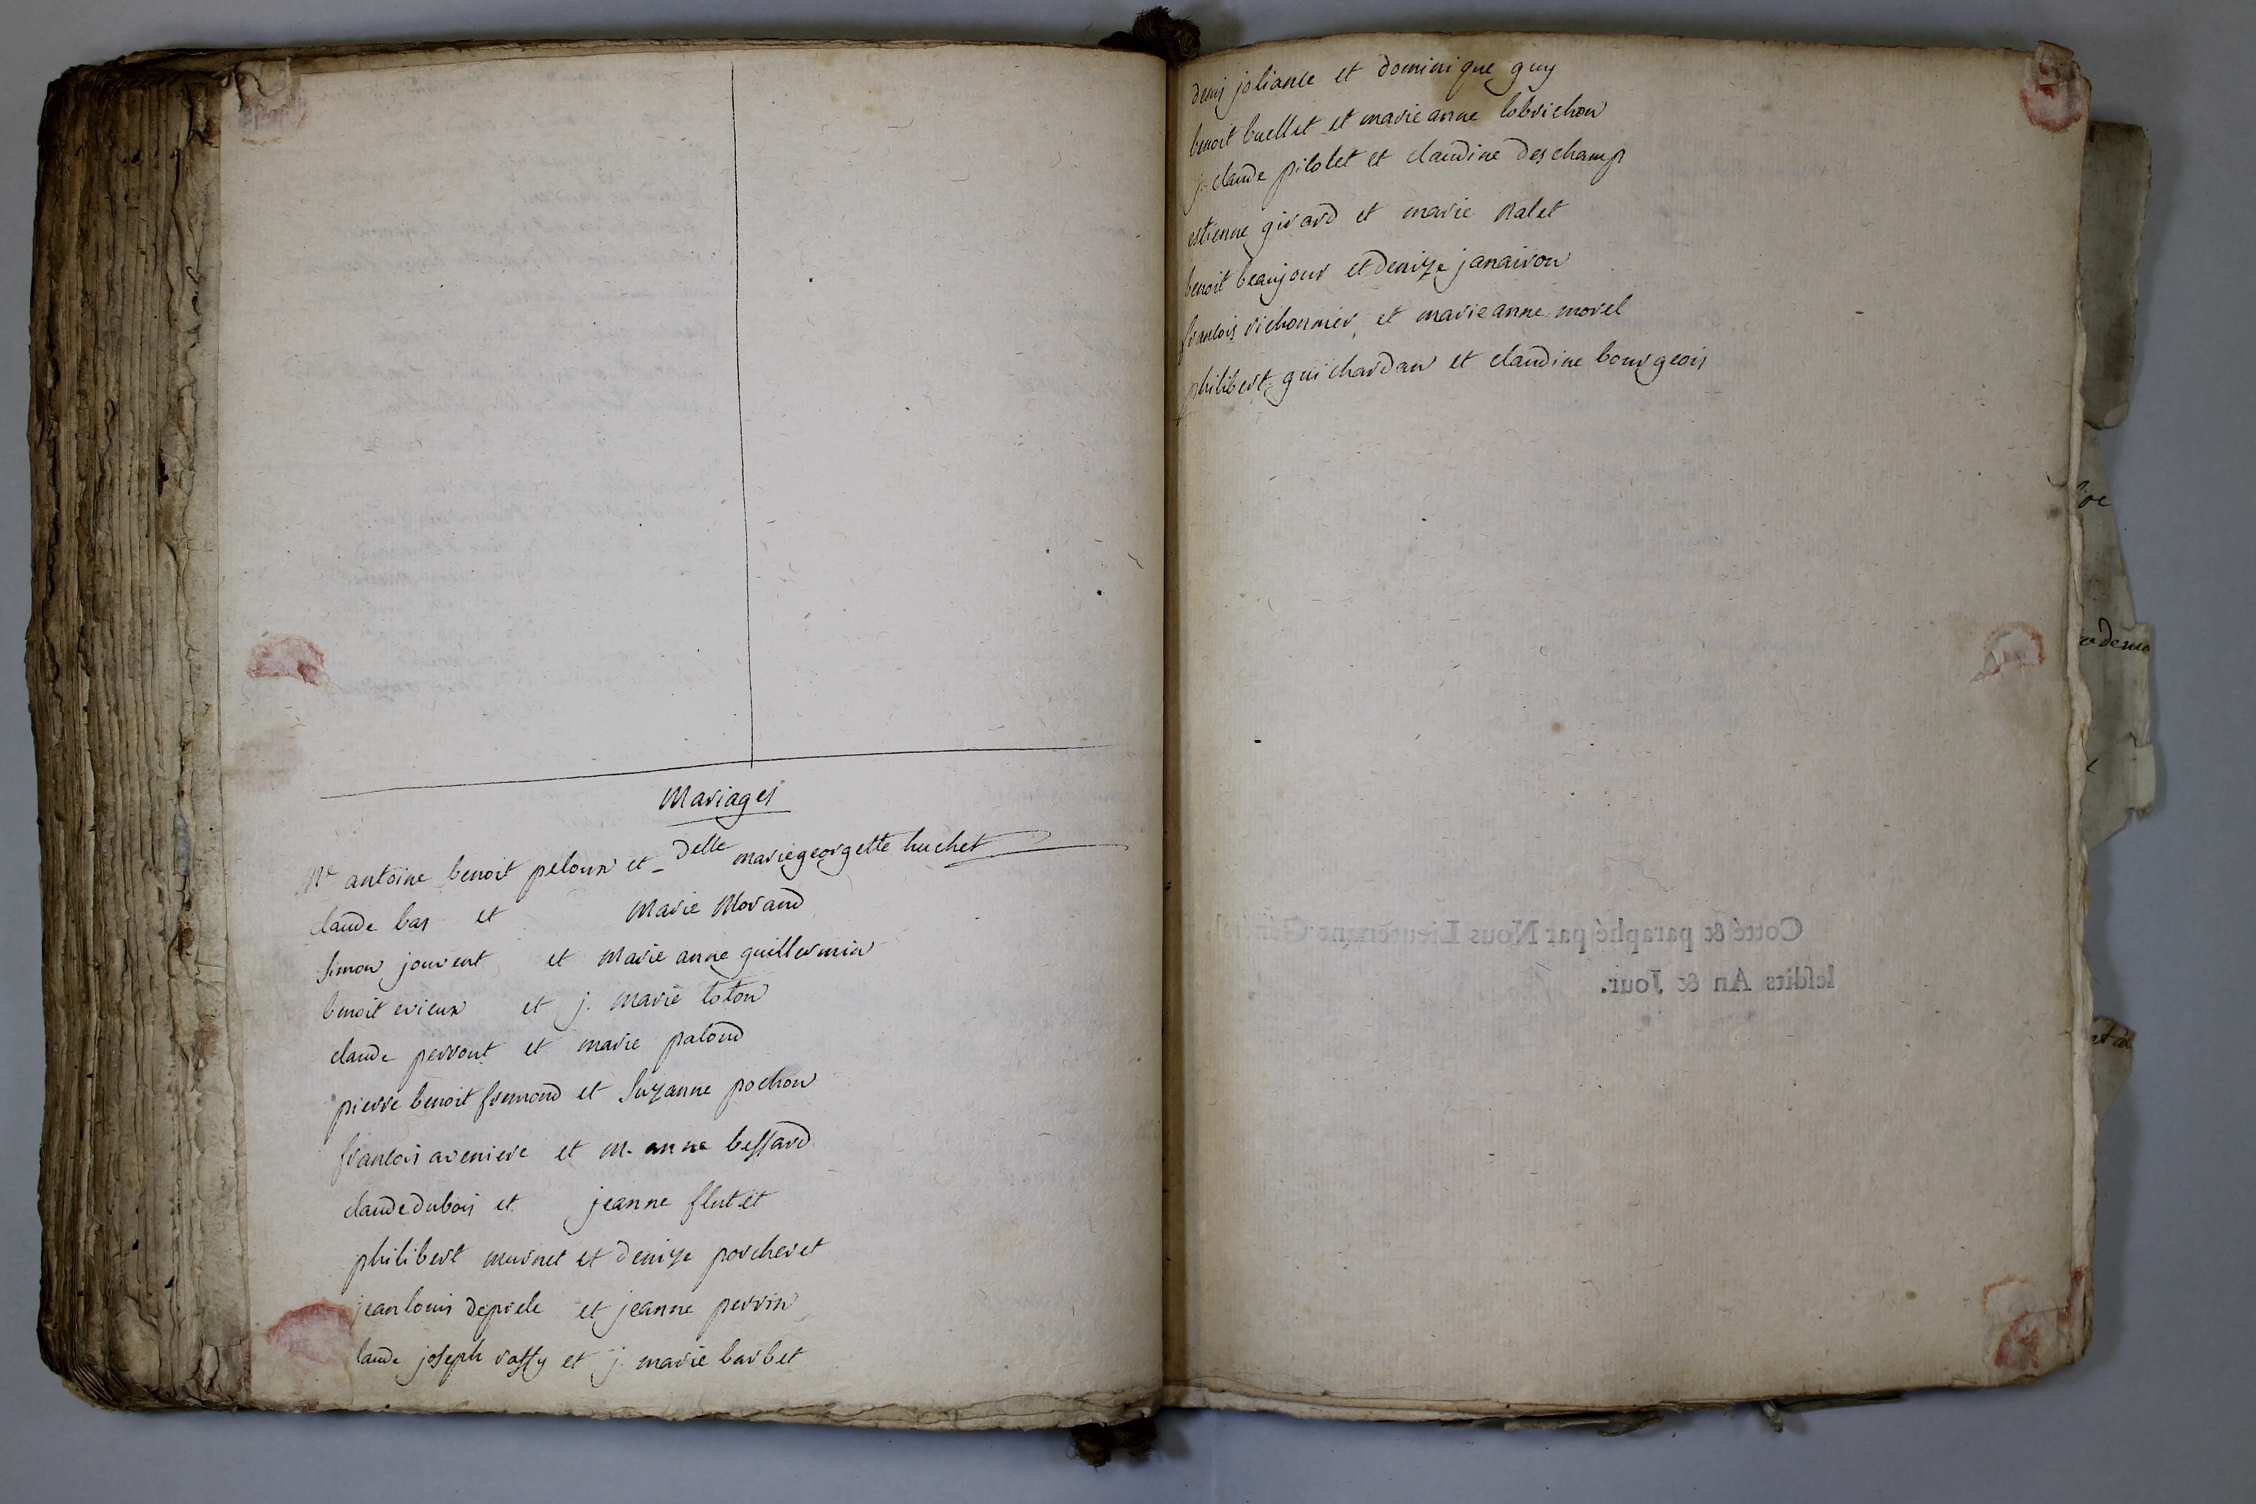 Mariages
Mr antoine benoit peloux et Delle marie georgette huchet
claude bas et Marie Morand
Simon jouvent et Marie anne guillermin
benoit evieux et j. marie toton
claude perrout et marie paloud
pierre benoit fremond et Suzanne pochon
francois aveniere et m. anne bessard
claude dubois et jeanne flutet
philibert murnet et denize porcheret
jean louis deprele et jeanne perrin
laude joseph raffy et j. marie barbet
denis joliance et dominique guy
benoit buellet et marie anne lobrichon
j. claude pilolet et claudine deschamp
estienne girard et marie palet
benoit beaujour et denize janairon
francois vichonnier et marie anne morel
philibert guichardan et claudine bourgeois
Cotté & paraphé par Nous Lieutenant Général
lesdits An & Jour.